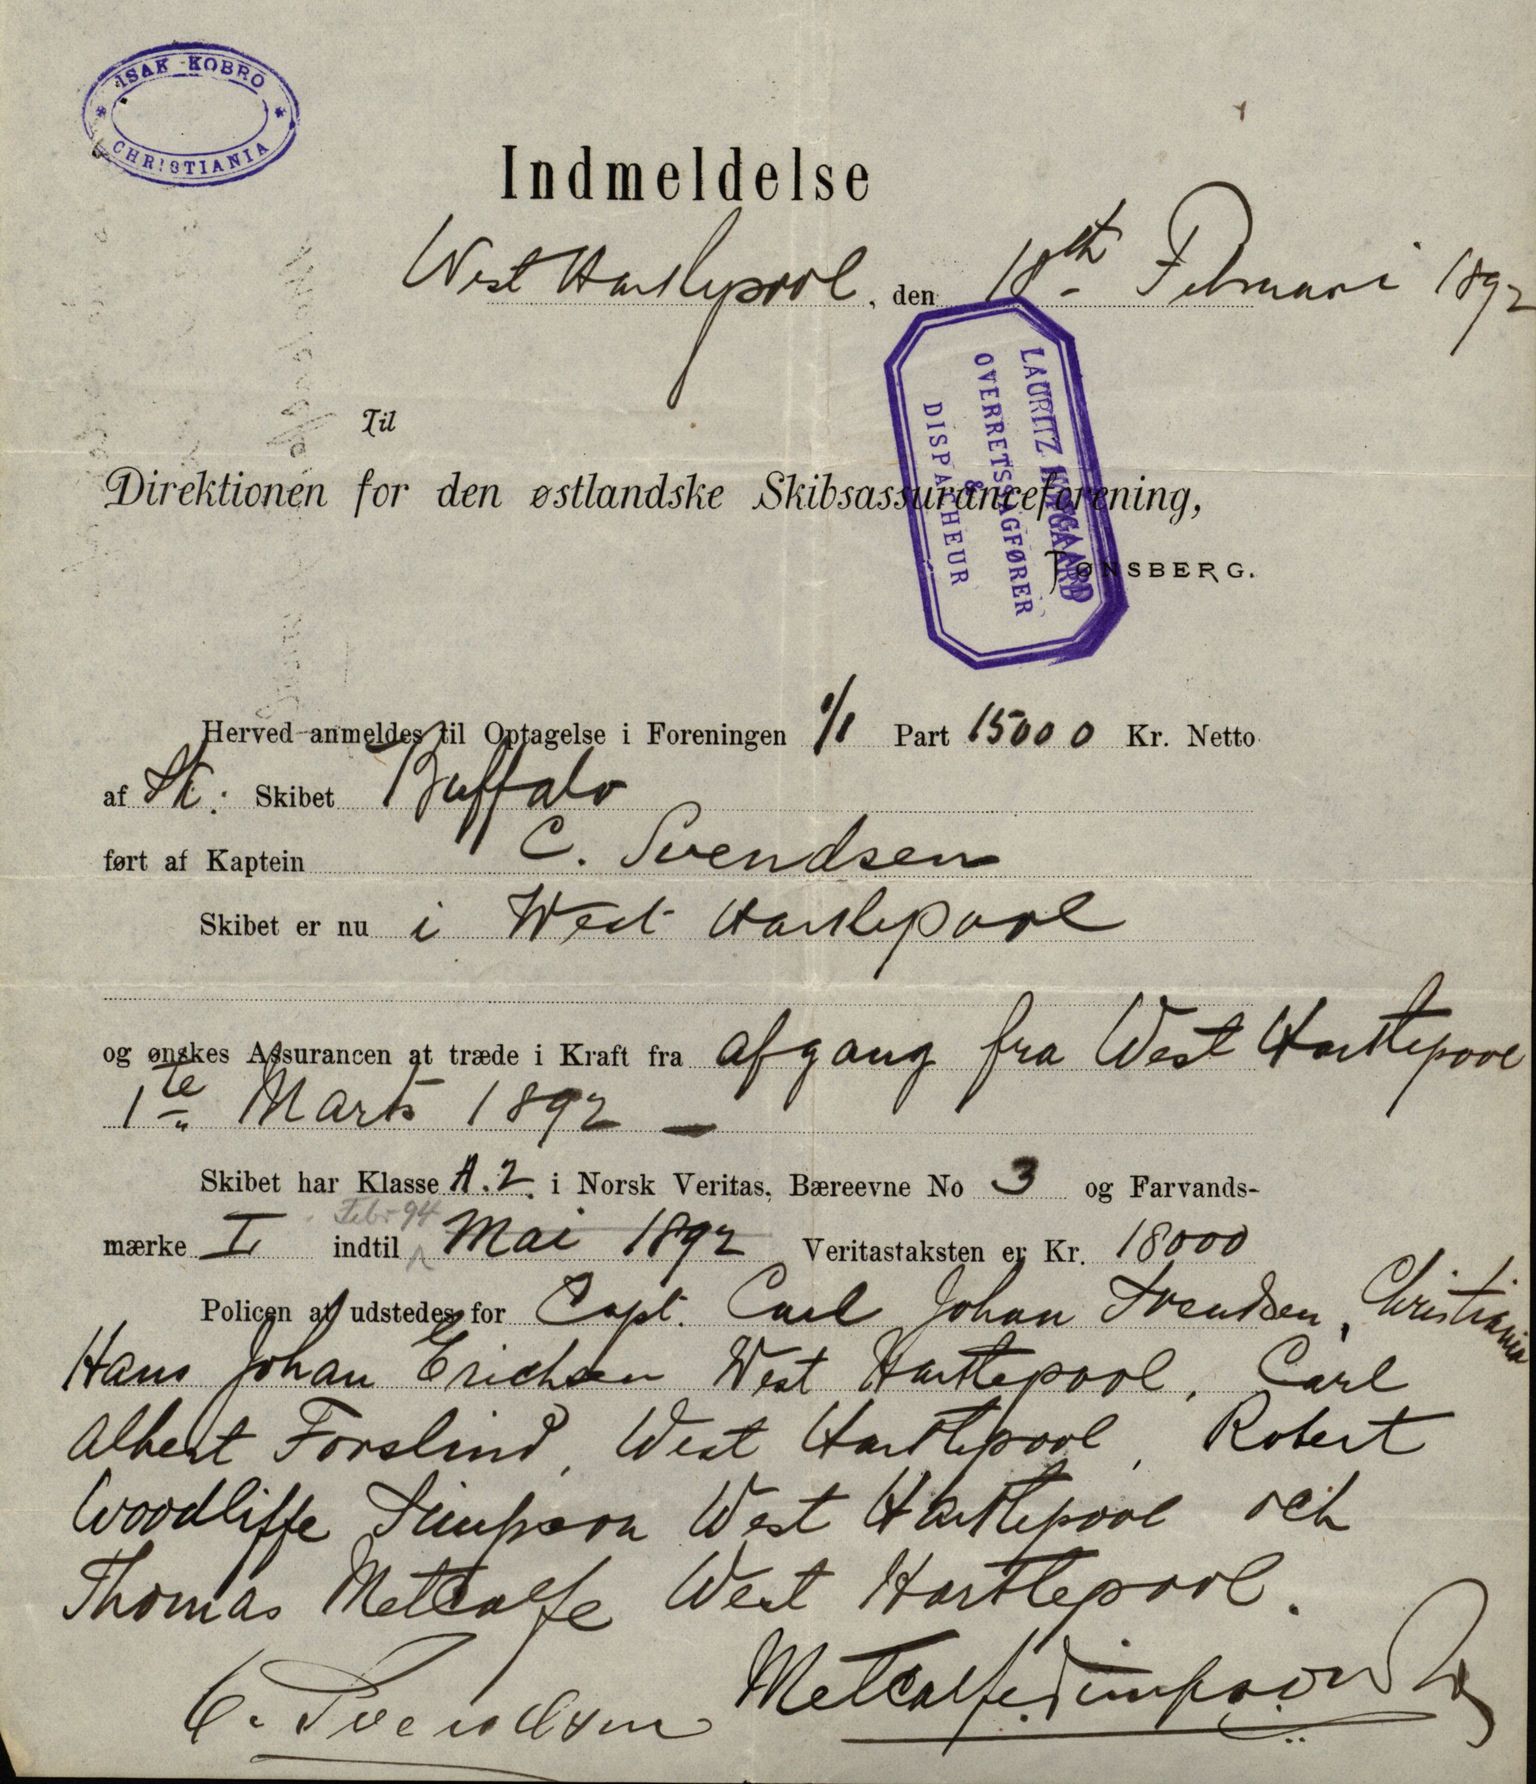 ISAK KOBRO
CHRISTIANIA
Indmeldelse
West Hartlepool, den 18th Februari 1892
LAURITZ
OVERRETSSAGFØRER
&
DISPACHEUR
Til
Direktionen for den østlandske Skibsassuranceforening,
TØNSBERG.
Herved anmeldes til Optagelse i Foreningen 1/1 Part 15000 Kr. Netto
af Sk: Skibet Buffalo
ført af Kaptein C. Svendsen
Skibet er nu i West Hartlepool
og ønskes Assurancen at træde i Kraft fra afgang fra West Hartlepool
1te Marts 1892 —
Skibet har Klasse A.2. i Norsk Veritas, Bæreevne No 3 og Farvands-
Febr 94
mærke I indtil Mai 1892 Veritastaksten er Kr. 18000
Policen at udstedes for Capt. Carl Johan Svendsen, Christiania
Hans Johan Erichsen West Hartlepool, Carl
Albert Forslind, West Hartlepool, Robert
Woodliffe Simpson West Hartlepool och
Thomas Metcalfe West Hartlepool.
C. Svendsen Metcalfe Simpson & Co